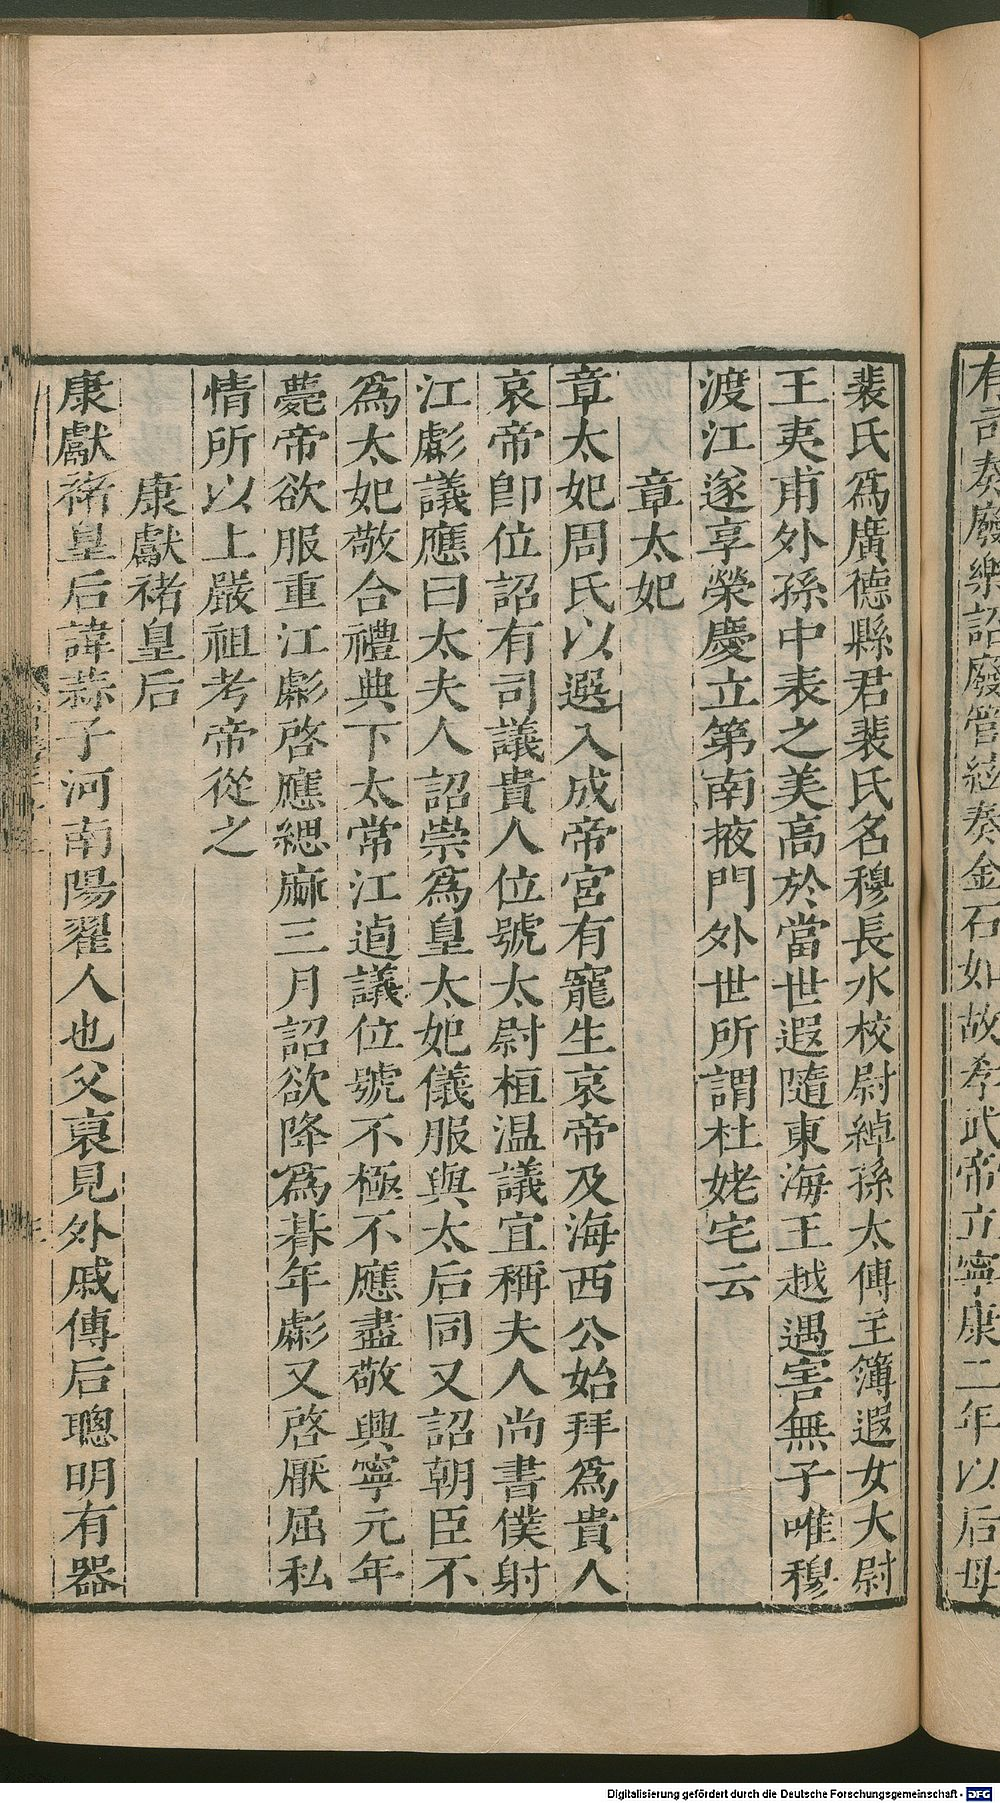 有司奏廢樂詔廢管絃奏金石如故孝武帝立寧康二年以后母
裴氏爲廣德縣君裴氏名穆長水校尉綽孫太傅主簿遐女大尉
王夷甫外孫中表之美高於當世遐隨東海王越遇害無子唯穆
渡江遂享榮慶立第南掖門外世所謂杜姥宅云
章太妃
章太妃周氏以選入成帝宮有寵生哀帝及海西公始拜爲貴人
哀帝卽位詔有司議貴人位號太尉桓温議宜稱夫人尚書僕射
江虨議應曰太夫人詔崇爲皇太妃儀服與太后同又詔朝臣不
爲太妃敬合禮典下太常江逌議位號不極不應盡敬興寧元年
薨帝欲服重江虨啓應緦麻三月詔欲降爲朞年虨又啓厭屈私
情所以上嚴祖考帝從之
康獻禇皇后
康獻禇皇后諱蒜子河南陽翟人也父裒見外戚傳后聰明有器
Digitalisierung gefördert durch die Deutsche Forschungsgemeinschaft - DFG